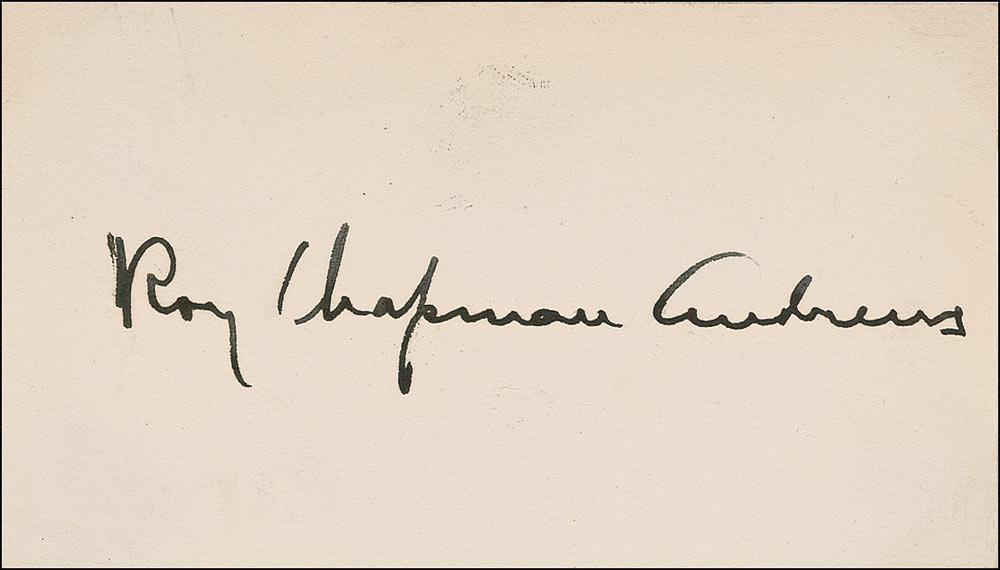 Roy Chapman Andrews